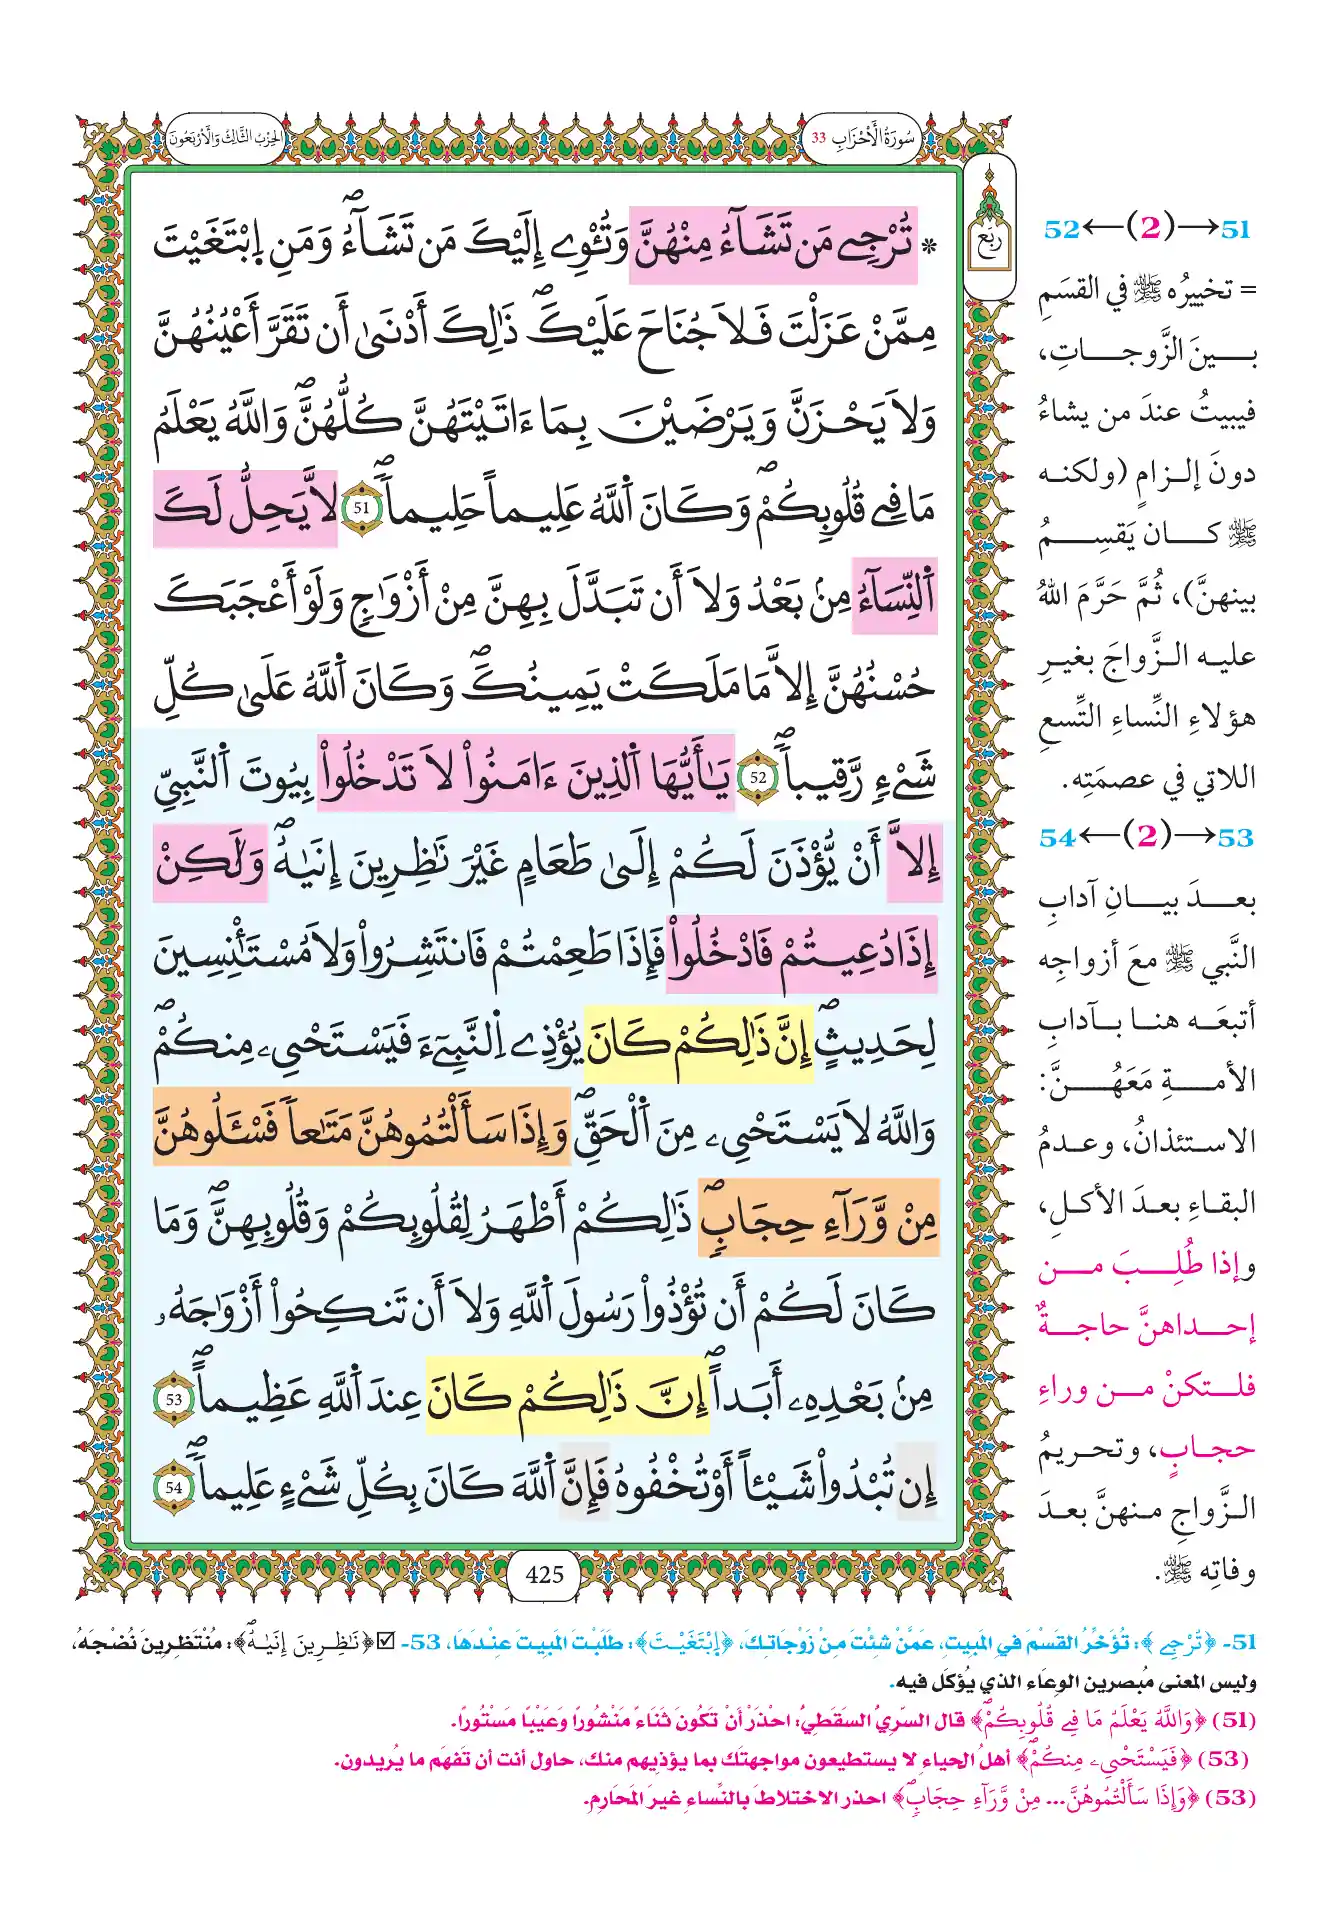 سُورَةُ الأَحْزَابِ 33
الحِزْبُ الثَّالِثُ وَالأَرْبَعُونَ
رُبُع
* تُرْجِے مَن تَشَآءُ مِنْهُنَّ وَتُـْٔوِے إِلَيْكَ مَن تَشَآءُۖ وَمَنِ اِبْتَغَيْتَ
مِمَّنْ عَزَلْتَ فَلاَ جُنَاحَ عَلَيْكَۖ ذَٰلِكَ أَدْنَىٰ أَن تَقَرَّ أَعْيُنُهُنَّ
وَلاَ يَحْزَنَّ وَيَرْضَيْنَ بِمَا ءَاتَيْتَهُنَّ كُلُّهُنَّۖ وَاللَّهُ يَعْلَمُ
مَا فِے قُلُوبِكُمْۖ وَكَانَ اَللَّهُ عَلِيماً حَلِيماًۖ 51 لاَّ يَحِلُّ لَكَ
اَلنِّسَآءُ مِنۢ بَعْدُ وَلاَ أَن تَبَدَّلَ بِهِنَّ مِنْ أَزْوَٰجٍ وَلَوْ أَعْجَبَكَ
حُسْنُهُنَّ إِلاَّ مَا مَلَكَتْ يَمِينُكَۖ وَكَانَ اَللَّهُ عَلَىٰ كُلِّ
شَےْءٍ رَّقِيباًۖ 52 يَـٰٓأَيُّهَا اَلذِينَ ءَامَنُواْ لاَ تَدْخُلُواْ بِيُوتَ اَلنَّبِيِّ
إِلاَّ أَنْ يُّؤْذَنَ لَكُمْ إِلَىٰ طَعَامٍ غَيْرَ نَـٰظِرِينَ إِنَيٰهُۖ وَلَـٰكِنْ
إِذَا دُعِيتُمْ فَادْخُلُواْ فَإِذَا طَعِمْتُمْ فَانتَشِرُواْ وَلاَ مُسْتَـْٔنِسِينَ
لِحَدِيثٍۖ إِنَّ ذَٰلِكُمْ كَانَ يُؤْذِے اِلنَّبِےٓءَ فَيَسْتَحْيِۦ مِنكُمْۖ
وَاللَّهُ لاَ يَسْتَحْيِۦ مِنَ اَلْحَقِّۖ وَإِذَا سَأَلْتُمُوهُنَّ مَتَـٰعاً فَسْـَٔلُوهُنَّ
مِنْ وَّرَآءِ حِجَابٍۖ ذَٰلِكُمْ أَطْهَرُ لِقُلُوبِكُمْ وَقُلُوبِهِنَّۖ وَمَا
كَانَ لَكُمْ أَن تُؤْذُواْ رَسُولَ اَللَّهِ وَلاَ أَن تَنكِحُواْ أَزْوَٰجَهُۥ
مِنۢ بَعْدِهِۦ أَبَداًۖ إِنَّ ذَٰلِكُمْ كَانَ عِندَ اَللَّهِ عَظِيماًۖ 53
إِن تُبْدُواْ شَيْـٔاً أَوْ تُخْفُوهُ فَإِنَّ اَللَّهَ كَانَ بِكُلِّ شَےْءٍ عَلِيماًۖ 54
425
51→(2)←52
= تخييرُه ﷺ في القسَمِ
بينَ الزَّوجاتِ،
فيبيتُ عندَ من يشاءُ
دونَ إلزامٍ (ولكنه
ﷺ كان يَقسِمُ
بينهنَّ)، ثُمَّ حَرَّمَ اللهُ
عليه الزَّواجَ بغيرِ
هؤلاءِ النِّساءِ التِّسعِ
اللاتي في عصمَتِه.
53→(2)←54
بعدَ بيانِ آدابِ
النَّبي ﷺ معَ أزواجِه
أتبعَه هنا بآدابِ
الأمةِ مَعَهُنَّ:
الاستئذانُ، وعدمُ
البقاءِ بعدَ الأكلِ،
وإذا طُلِبَ من
إحداهنَّ حاجةٌ
فلتكنْ من وراءِ
حجابٍ، وتحريمُ
الزَّواجِ منهنَّ بعدَ
وفاتِه ﷺ.
51- ﴿تُرْجِے﴾: تُؤَخِّرُ القَسْمَ فِي المَبِيتِ، عَمَّنْ شِئْتَ مِنْ زَوْجَاتِكَ، ﴿اِبْتَغَيْتَ﴾: طَلَبْتَ المَبِيتَ عِنْدَهَا، 53- ☑﴿نَـٰظِرِينَ إِنَيٰهُۖ﴾: مُنْتَظِرِينَ نُضْجَهُ،
وليس المعنى مُبصرين الوِعَاء الذي يُؤكَل فيه.
(51) ﴿وَاللَّهُ يَعْلَمُ مَا فِے قُلُوبِكُمْۖ﴾ قال السَّرِيُّ السَّقَطِيُّ: احْذَرْ أَنْ تَكُونَ ثَنَاءً مَنْشُورًا وَعَيْبًا مَسْتُورًا.
(53) ﴿فَيَسْتَحْيِۦ مِنكُمْۖ﴾ أهلُ الحياءِ لا يستطيعون مواجهتَك بما يؤذيهم منك، حاول أنت أن تَفهَمَ ما يُريدون.
(53) ﴿وَإِذَا سَأَلْتُمُوهُنَّ... مِنْ وَّرَآءِ حِجَابٍۖ﴾ احذر الاختلاطَ بالنِّساءِ غيرَ المَحَارِمِ.